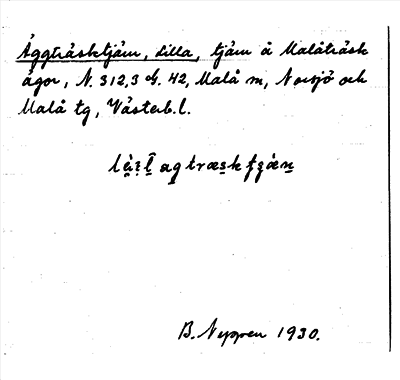 Äggträsktjärn, Lilla, tjärn å Malåträsk
ägor, N. 312,3 G. 42, Malå sn, Norsjö och
Malå tg, Västerb.l.
agtræsk
B. Neppen 1930.